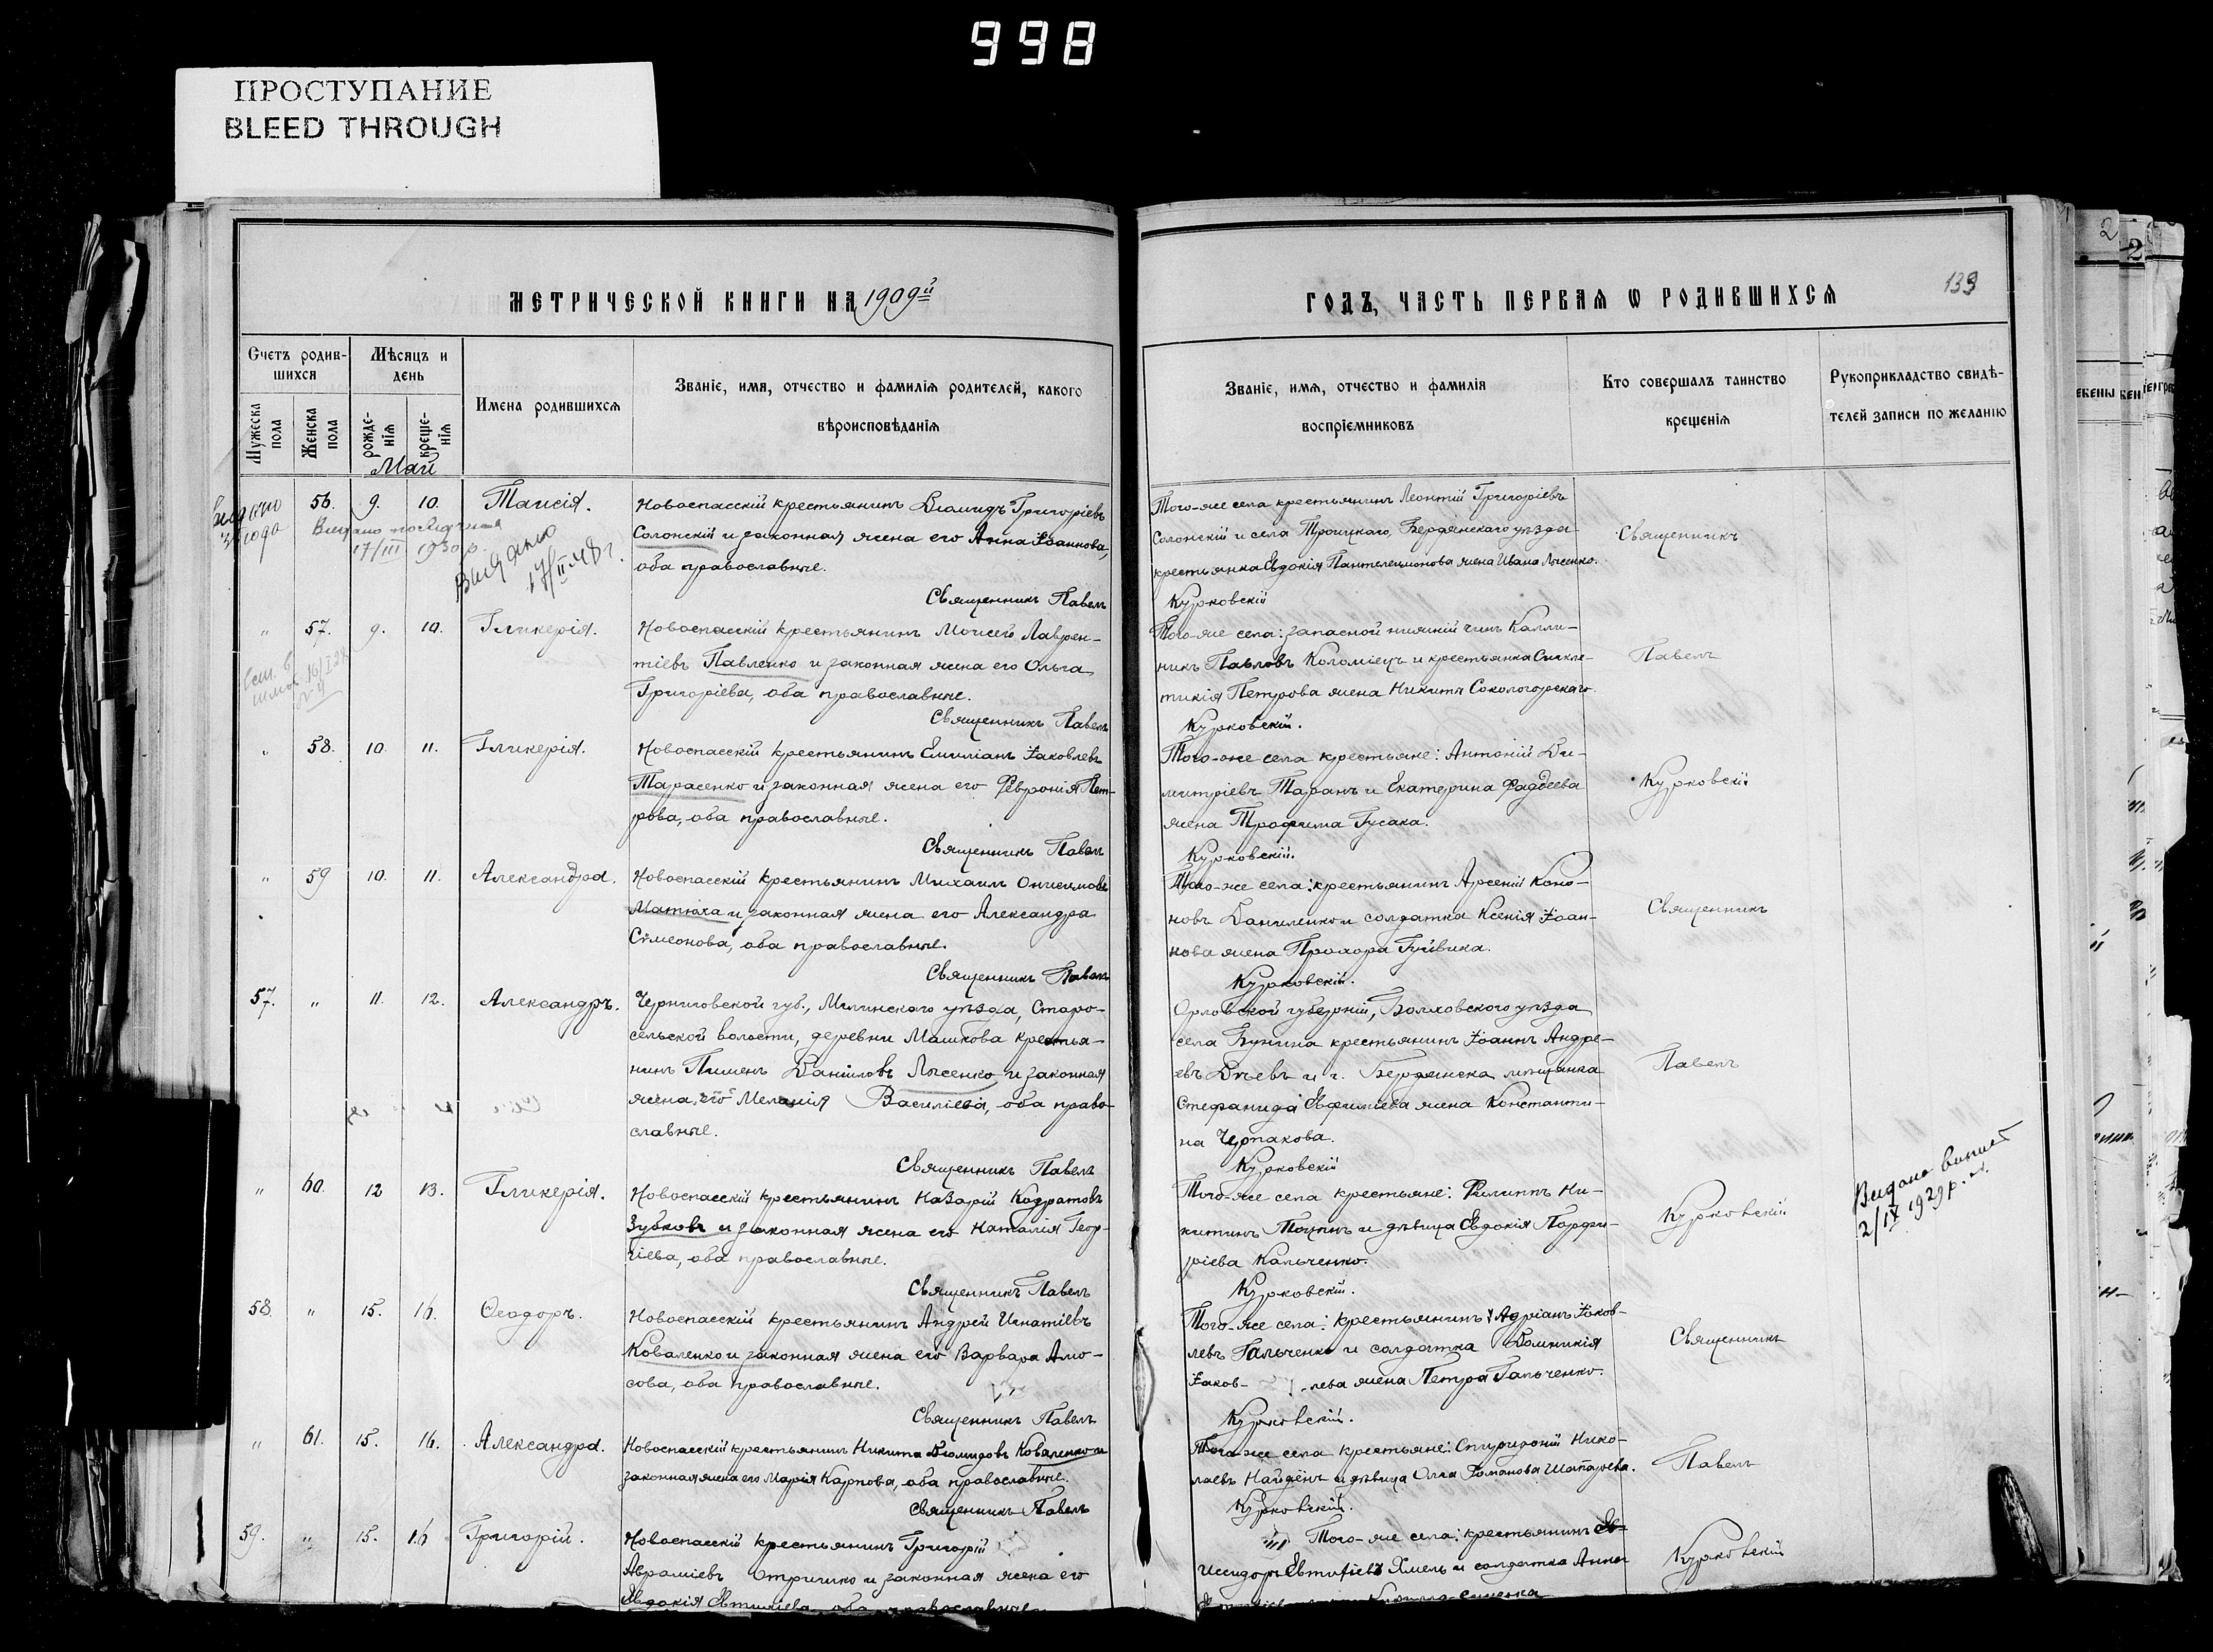 998
ПРОСТУПАНИЕ
BLEED THROUGH
МЕТРИЧЕСКОЙ КНИГИ НА 1909й
Счетъ родив-
шихся
Мѣсяцъ и
день
Мужеска
пола
Женска
пола
рожде-
нія
креще-
нія
Имена родившихся
Званіе, имя, отчество и фамилія родителей, какого
вѣроисповѣданія
Май
56. 9. 10. Таисія.
Новоспасскій крестьянинъ Діомидъ Григоріевъ
Солонскій и законная жена его Анна Іоаннова,
оба православные.
Священникъ Павелъ
17/III 1930 р.
Видано
17/II 48 г.
" 57. 9. 10. Гликерія.
Новоспасскій крестьянинъ Моисей Лаврен-
тіевъ Павленко и законная жена его Ольга
Григоріева, оба православные.
Священникъ Павелъ
" 58. 10. 11. Гликерія.
Новоспасскій крестьянинъ Емиліанъ Іаковлевъ
Тарасенко и законная жена его Февронія Пет-
рова, оба православные.
Священникъ Павелъ
" 59 10. 11. Александра.
Новоспасскій крестьянинъ Михаилъ Онисимовъ
Матюха и законная жена его Александра
Сѵмеонова, оба православные.
Священникъ Павелъ
57. " 11. 12. Александръ.
Черниговской губ., Мглинскаго уѣзда, Старо-
сельской волости, деревни Машкова крестья-
нинъ Пименъ Даніиловъ Лысенко и законная
жена его Меланія Василіева, оба право-
славные.
Священникъ Павелъ
" 60. 12 13. Гликерія.
Новоспасскій крестьянинъ Назарій Кодратовъ
Зубковъ и законная жена его Наталія Геор-
гіева, оба православные.
Священникъ Павелъ
58. " 15. 16. Ѳеодоръ.
Новоспасскій крестьянинъ Андрей Игнатіевъ
Коваленко и законная жена его Варвара Амо-
сова, оба православные.
Священникъ Павелъ
" 61. 15. 16. Александра.
Новоспасскій крестьянинъ Никита Діомидовъ Коваленко и
законная жена его Марія Карпова, оба православные.
Священникъ Павелъ
59. " 15. 16 Григорій.
Новоспасскій крестьянинъ Григорій
Авраміевъ и законная жена его
Евдокія Евтихіева, оба православные
ГОДЪ, ЧАСТЬ ПЕРВАЯ Ѡ РОДИВШИХСЯ
139
Званіе, имя, отчество и фамилія
воспріємниковъ
Кто совершалъ таинство
крещенія
Рукоприкладство свидѣ-
телей записи по желанію
Того-же села крестьянинъ Леонтій Григоріевъ
Солонскій и села Троицкаго, Бердянскаго уѣзда
крестьянка Евдокія Пантелеимонова жена Ивана Лысенко.
Курковскій
Священникъ
Того-же села: запасной нижній чинъ Калли-
никъ Павловъ Коломіецъ и крестьянка Синкле-
тикія Петрова жена Никиты Сокологорскаго.
Курковскій.
Павелъ
Того-же села крестьяне: Антоній Ди-
митріевъ Таранъ и Екатерина Фаддеева
жена Трофима Гусака.
Курковскій.
Курковскій
Того-же села: крестьянинъ Арсеній Коно-
новъ Даниленко и солдатка Ксенія Іоан-
нова жена Прохора Гуйвика.
Курковскій.
Священникъ
Орловской губерніи, Болховского уѣзда
села Бунина крестьянинъ Іоаннъ Андре-
евъ и г. Бердянска мѣщанка
Стефанида Евфиміева жена Константи-
на Черпакова.
Курковскій
Павелъ
Того-же села крестьяне: Филиппъ Ни-
китинъ и дѣвица Евдокія Порфи-
ріева Кальченко.
Курковскій.
Курковскій
2/IX 1929 р.
Того-же села: крестьянинъ Адріанъ Іаков-
левъ Гальченко и солдатка Домникія
Іаков- лева жена Петра Гальченко.
Курковскій.
Священникъ
Того-же села крестьяне: Спиридонъ Нико-
лаевъ Найденъ и дѣвица Ольга Романова
Курковскій.
Павелъ
Того-же села: крестьянинъ
Исидоръ Евтихіевъ Хмель и солдатка Анна
Курковскій